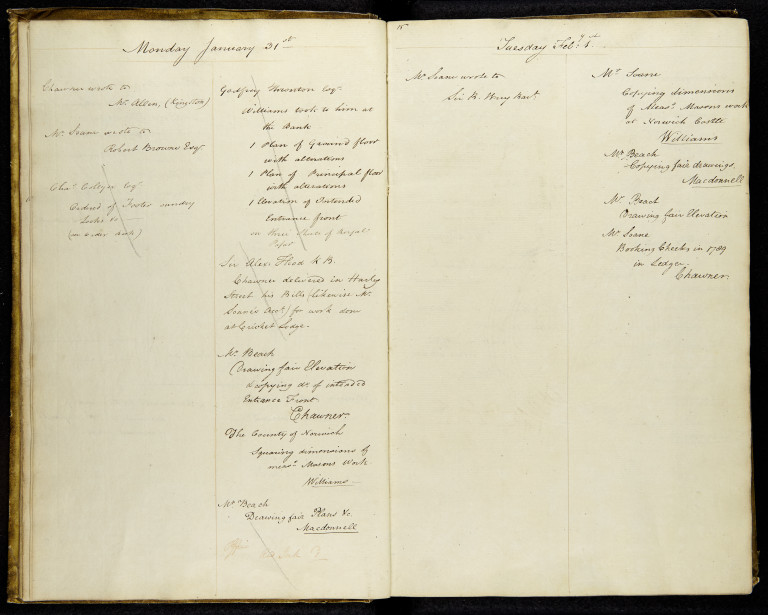 Monday January 31st
Chawner wrote to
Mr. Alden, (Kingston)
Mr. Soane wrote to
Robert Browne Esqr
Chas. Esqr
Ordered of Foster sundry
Locks &c
(in order book)
Godfrey Thornton Esqr
Williams took to him at
the Bank
1 Plan of Ground floor
with alterations
1 Plan of Principal floor
with alterations
1 Elevation of Intended
Entrance front
on three Sheets of Royal
Paper
Sir Alexr Hood K B.
Chawner delivered in Harley
Street his Bills (likewise Mr.
Soane's Acct.) for work done
at Cricket Lodge.
Mr. Beach
Drawing fair Elevation
& copying do of intended
Entrance Front
Chawner.
The County of Norwich
Squaring dimensions of
measd Masons Work
Williams
Mr. Beach
Drawing fair Plans &c.
Macdonnell
Tuesday Feby. 1st
Mr. Soane wrote to
Sir H. Bart.
Mr. Soane
Copying dimensions
of Measd. Masons work
at Norwich Castle
Williams
Mr. Beach
Copying fair drawings.
Macdonnell
Mr. Beach
Drawing fair Elevation
Mr. Soane
Booking Checks in 1789
in Ledger.
Chawner